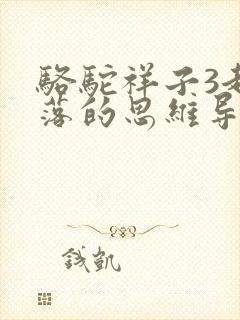 駱駝祥子3起
落的思維導
錢凱